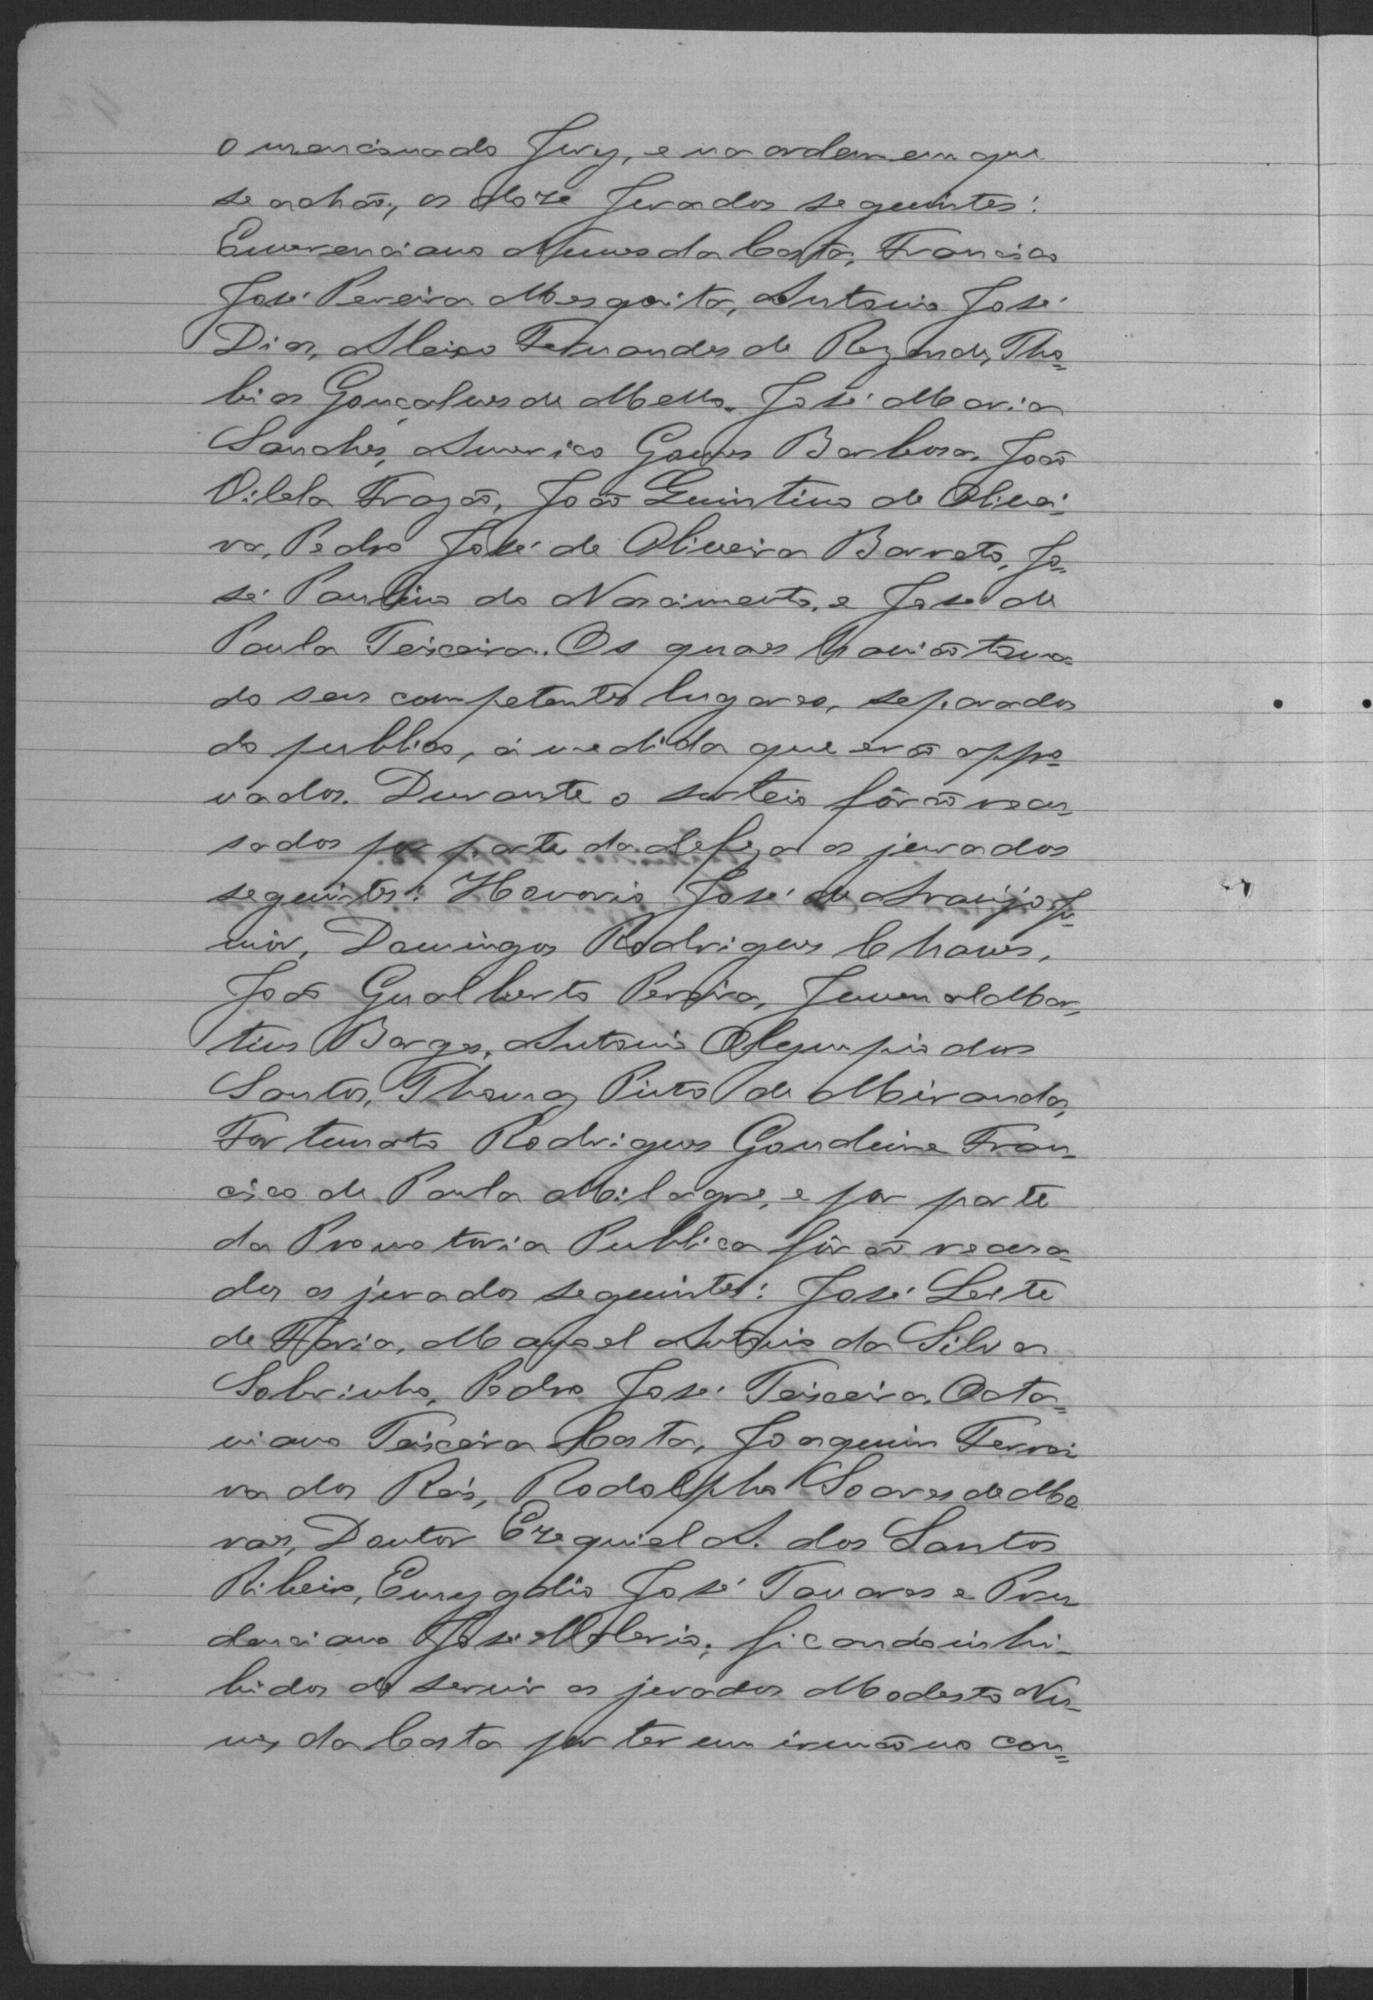 o mencionado Jury, e na ordem em que
se achão, os doze Jurados seguintes:
Emerenciano Nunes da Costa, Francisco
José Pereira Mesquita, Antonio José
Dias, Aleixo Fernandes de Rezende, Tho=
bias Gonçalves de Mello, José Maria
Sanches, Americo Gomes Barbosa, João
Vilela Frazão, João Quintino de Olivei=
ra, Pedro José de Oliveira Barreto, Jo=
sé Paulino do Nascimento, e José de
Paula Teixeira. Os quaes havião toma
do seus competentes lugares, separados
do publico, á medida que erão appro=
vados. Durante o sorteio fôrão recu=
sados por parte da defeza os jurados
seguintes: Honorio José de Araujo Ju=
nior, Domingos Rodrigues Chaves,
João Gualberto Pereira, Juvenal Mar=
tins Borges, Antonio Olympio dos
Santos, Thomaz Pinto de Miranda,
Fortunato Rodrigues Gondim e Fran=
cisco de Paula Milagre, e por parte
da Promotoria Publica fôrão recusa=
dos os jurados seguintes: José Leite
de Faria, Manoel Antonio da Silva
Sobrinho, Pedro José Teixeira, Octa=
viano Teixeira Costa, Joaquim Ferrei
ra dos Reis, Rodolpho Soares de Mo
raes, Doutor Ezequiel A. dos Santos
Ribeiro, Emygdio José Tavares e Pru
denciano José Valerio, ficando inhi=
bidos de servir os jurados Modesto Nu=
nes da Costa por ter um irmão no con=